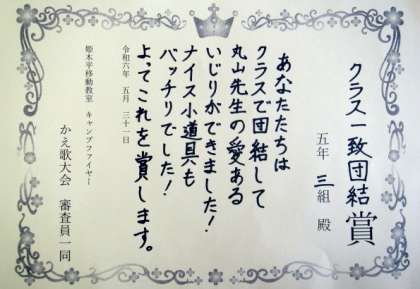 クラス一致団結賞
五年 三組 殿
あなたたちは
クラスで団結して
丸山先生の愛ある
いじりができました！
ナイス小道具も
バッチリでした！
よってこれを賞します。
令和六年 五月 三十一日
姫木平移動教室 キャンプファイヤー
かえ歌大会 審査員一同